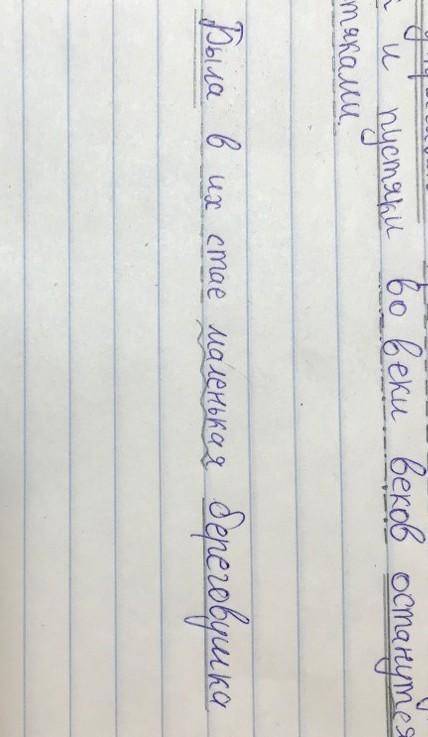 и пустяки во веки веков останутся
тяками.
Была в их стае маленькая береговушка